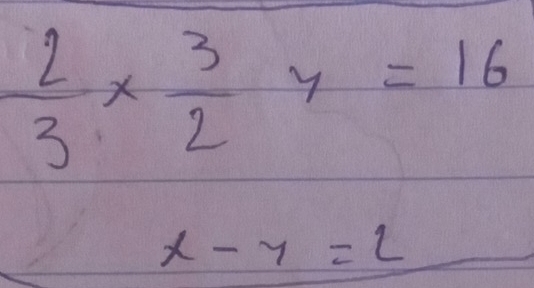 2/3 x 3/2 y = 16
x - y = 2